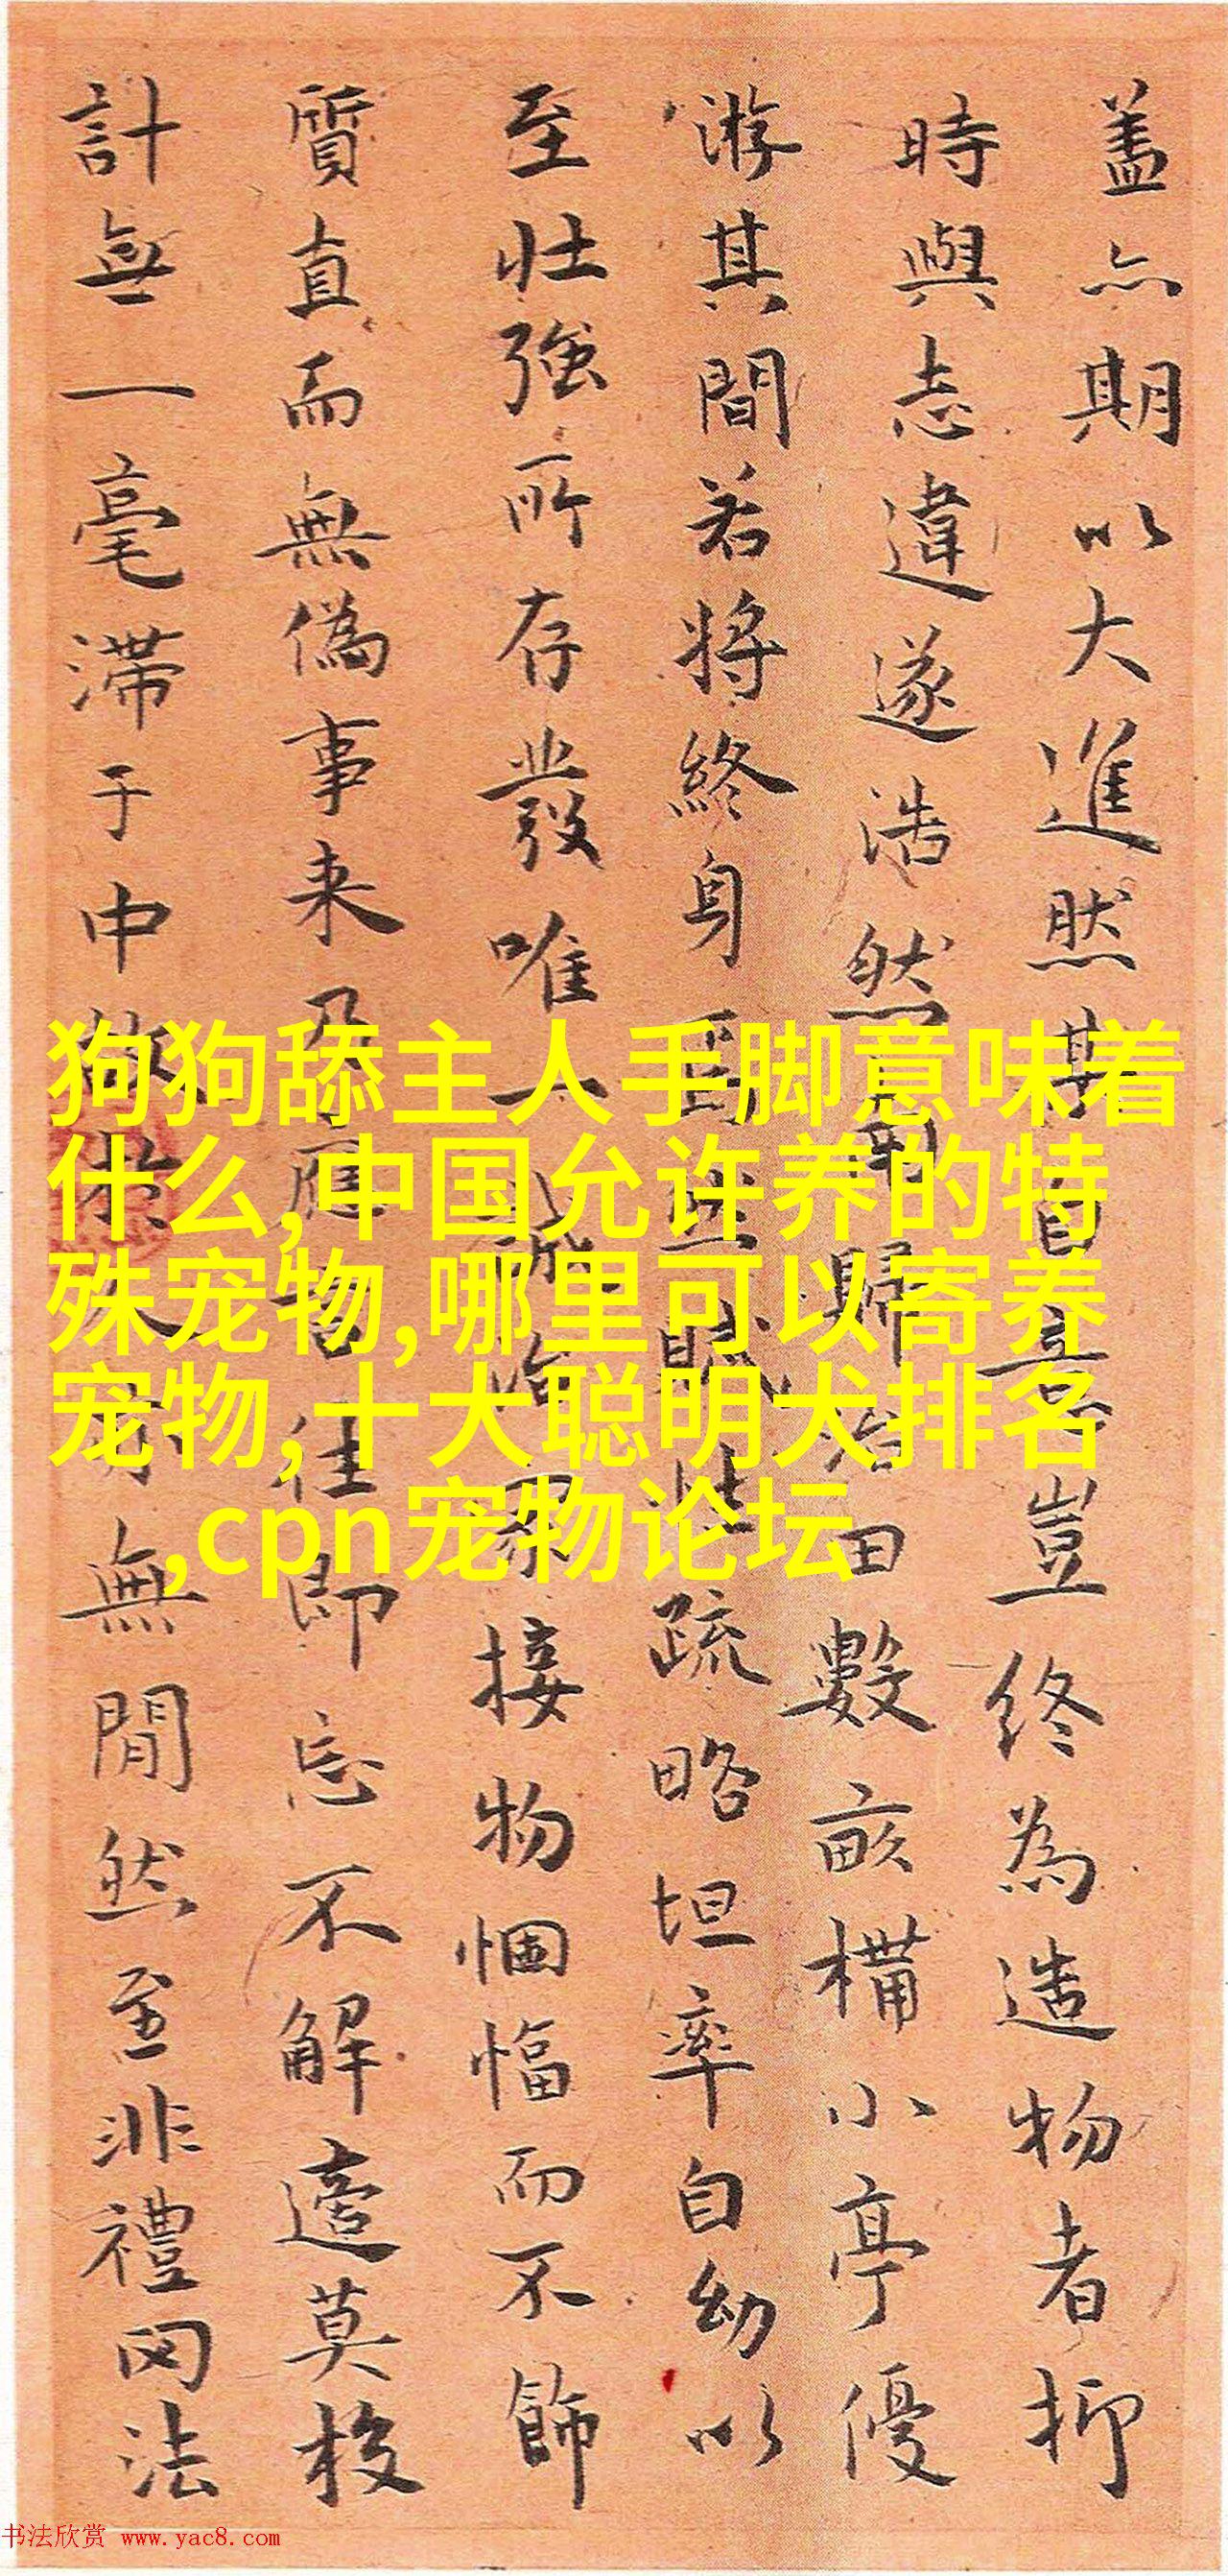 蓋亦期以大進然其自喜豈終為造物者抑
時與志違遂浩然而歸治田數畝構小亭優
游其間若將終身焉然賦性疏略坦率自幼以
至壯強所存發唯一誠治家接物悃愊而不飾
質直而無偽事来乃應事往即忘不解邅莫梭
計無一毫滞于中故樂易無間然至非禮罔法
狗狗舔主人手脚意味着
什么,中国允许养的特
殊宠物,哪里可以寄养
宠物,十大聪明犬排名
,cpn宠物论坛
书法欣赏 www.yac8.com